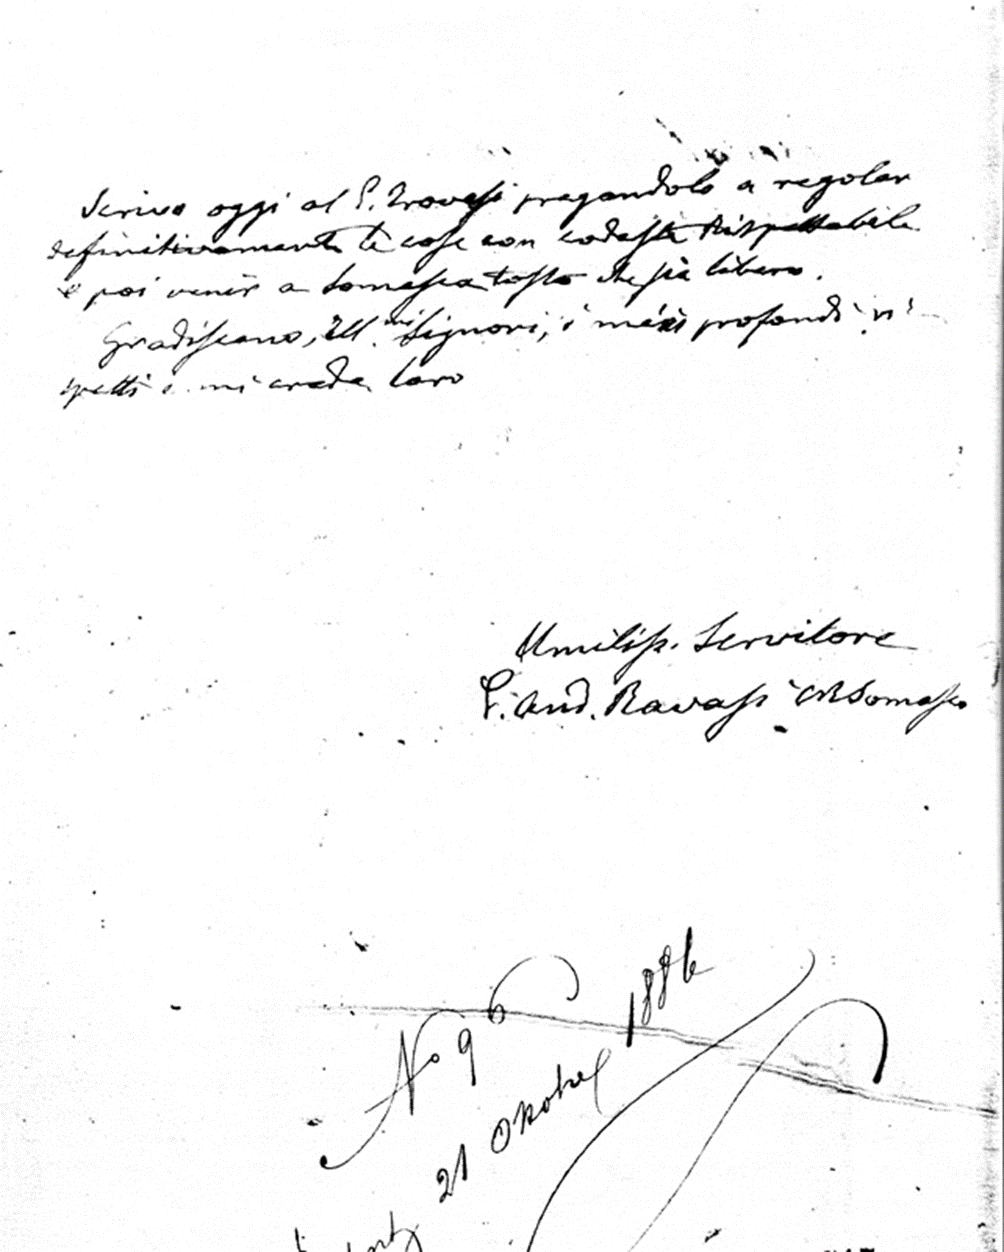 Scrivo oggi al P. Trovesi pregandolo a regolar
definitivamente le cose con codesta Rispettabile
e poi venir a Somasca tosto che sia libero.
Gradiscano, Ill.mi Signori, i miei profondi ri-
spetti e mi creda loro
Umiliss. Servitore
P. And. Ravasi CRSomasco
No 96
21 Oktober 1886